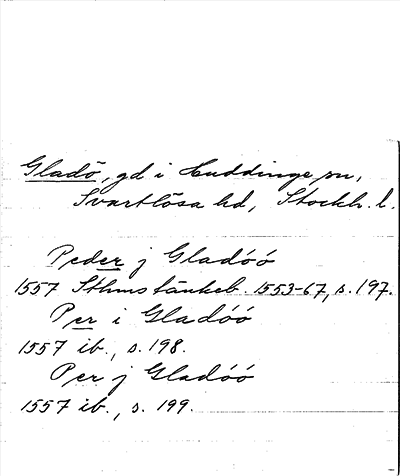 Gladö, gd i Huddinge sn,
Svartlösa hd, Stockh. l.
Peder j Gladóó
1557 Sthms tänkeb. 1553-67, s. 197.
Per i Gladóó
1557 ib., s. 198.
Per j Gladóó
1557 ib., s. 199.